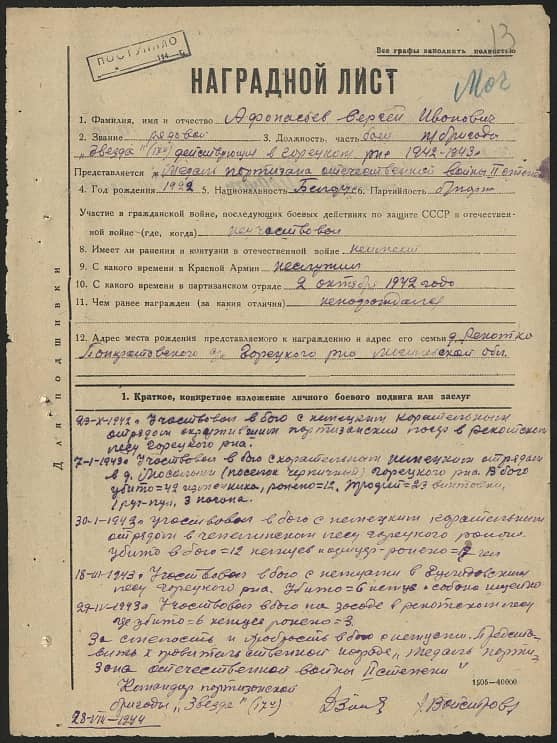 13
ПОСТУПИЛО
194
Все графы заполнять полностью
НАГРАДНОЙ ЛИСТ
1. Фамилия, имя и отчество Афонасьев Сергей Иванович
2. Звание рядовой 3. Должность, часть боец п/бригада
"Звезда" (17ч) действующая в Горецком р-не 1942-1943г
Представляется к медаль партизана отечественной войны II степени
4. Год рождения 1922 5. Национальность 6. Партийность
Участие в гражданской войне, последующих боевых действиях по защите СССР и отечествен-
ной войне (где, когда) неучаствовал
8. Имеет ли ранения и контузии в отечественной войне неимеет
9. С какого времени в Красной Армии неслужил
10. С какого времени в партизанском отряде 2 октября 1942 года
11. Чем ранее награжден (за какие отличия) ненаграждался
12. Адрес места рождения представляемого к награждению и адрес его семьи д. Рекотка
Горецкого р-на Могилевской обл.
Для подшивки
1. Краткое, конкретное изложение личного боевого подвига или заслуг
23-X-1942г Участвовал в бою с немецким карательным
отрядом партизанский в Рекотском
лесу Горецкого р-на.
7-1-1943г Участвовал в бою с карательным немецким отрядом
в д. (поселок Черничный) Горецкого р-на. В бою
убито=42 ранено=12. Трофеи=23 винтовки,
1 руч-пул, 3 нагана.
30-1-1943г участвовал в бою с немецким карательным
отрядом в лесу Горецкого района.
убито в бою=12 немцев ранено=7 чел
18-III-1943г Участвовал в бою с немцами в
лесу Горецкого р-на. Убито=6 немцев и собака ищейка
29-IV-1943г Участвовал в бою на засаде в рекотском лесу
где убито=6 немцев ранено=3.
За смелость и храбрость в бою с немцами. Представ-
вить к правительственной награде "медаль парти-
зана отечественной войны II степени"
Командир партизанской
бригады "Звезда" (17ч)
1505-40000
28-VIII-1944